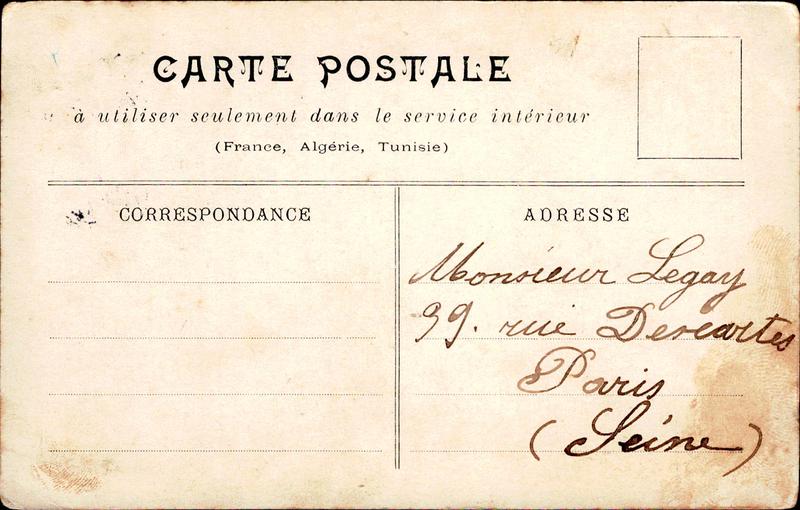 CARTE POSTALE
à utiliser seulement dans le service intérieur
(France, Algérie, Tunisie)
CORRESPONDANCE
ADRESSE
Monsieur Legay
39. rue Descartes
Paris
(Seine)